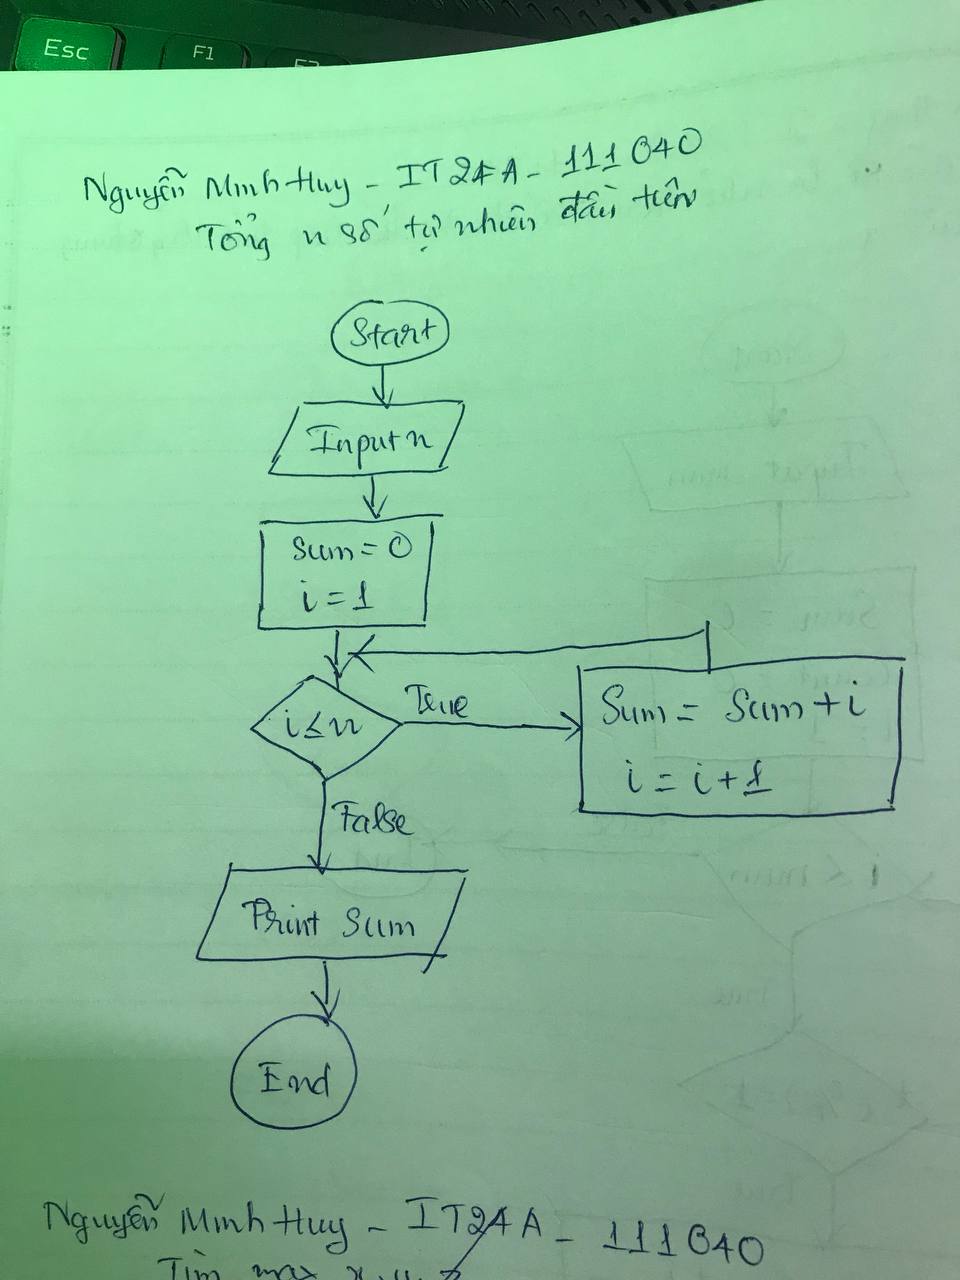 Esc
F1
Nguyễn Minh Huy - IT24A - 111040
Tổng n số tự nhiên đầu tiên
Start
Input n
Sum = 0
i = 1
i ≤ n
True
Sum = Sum + i
i = i + 1
False
Print Sum
End
Nguyễn Minh Huy - IT24A - 111040
Tìm max